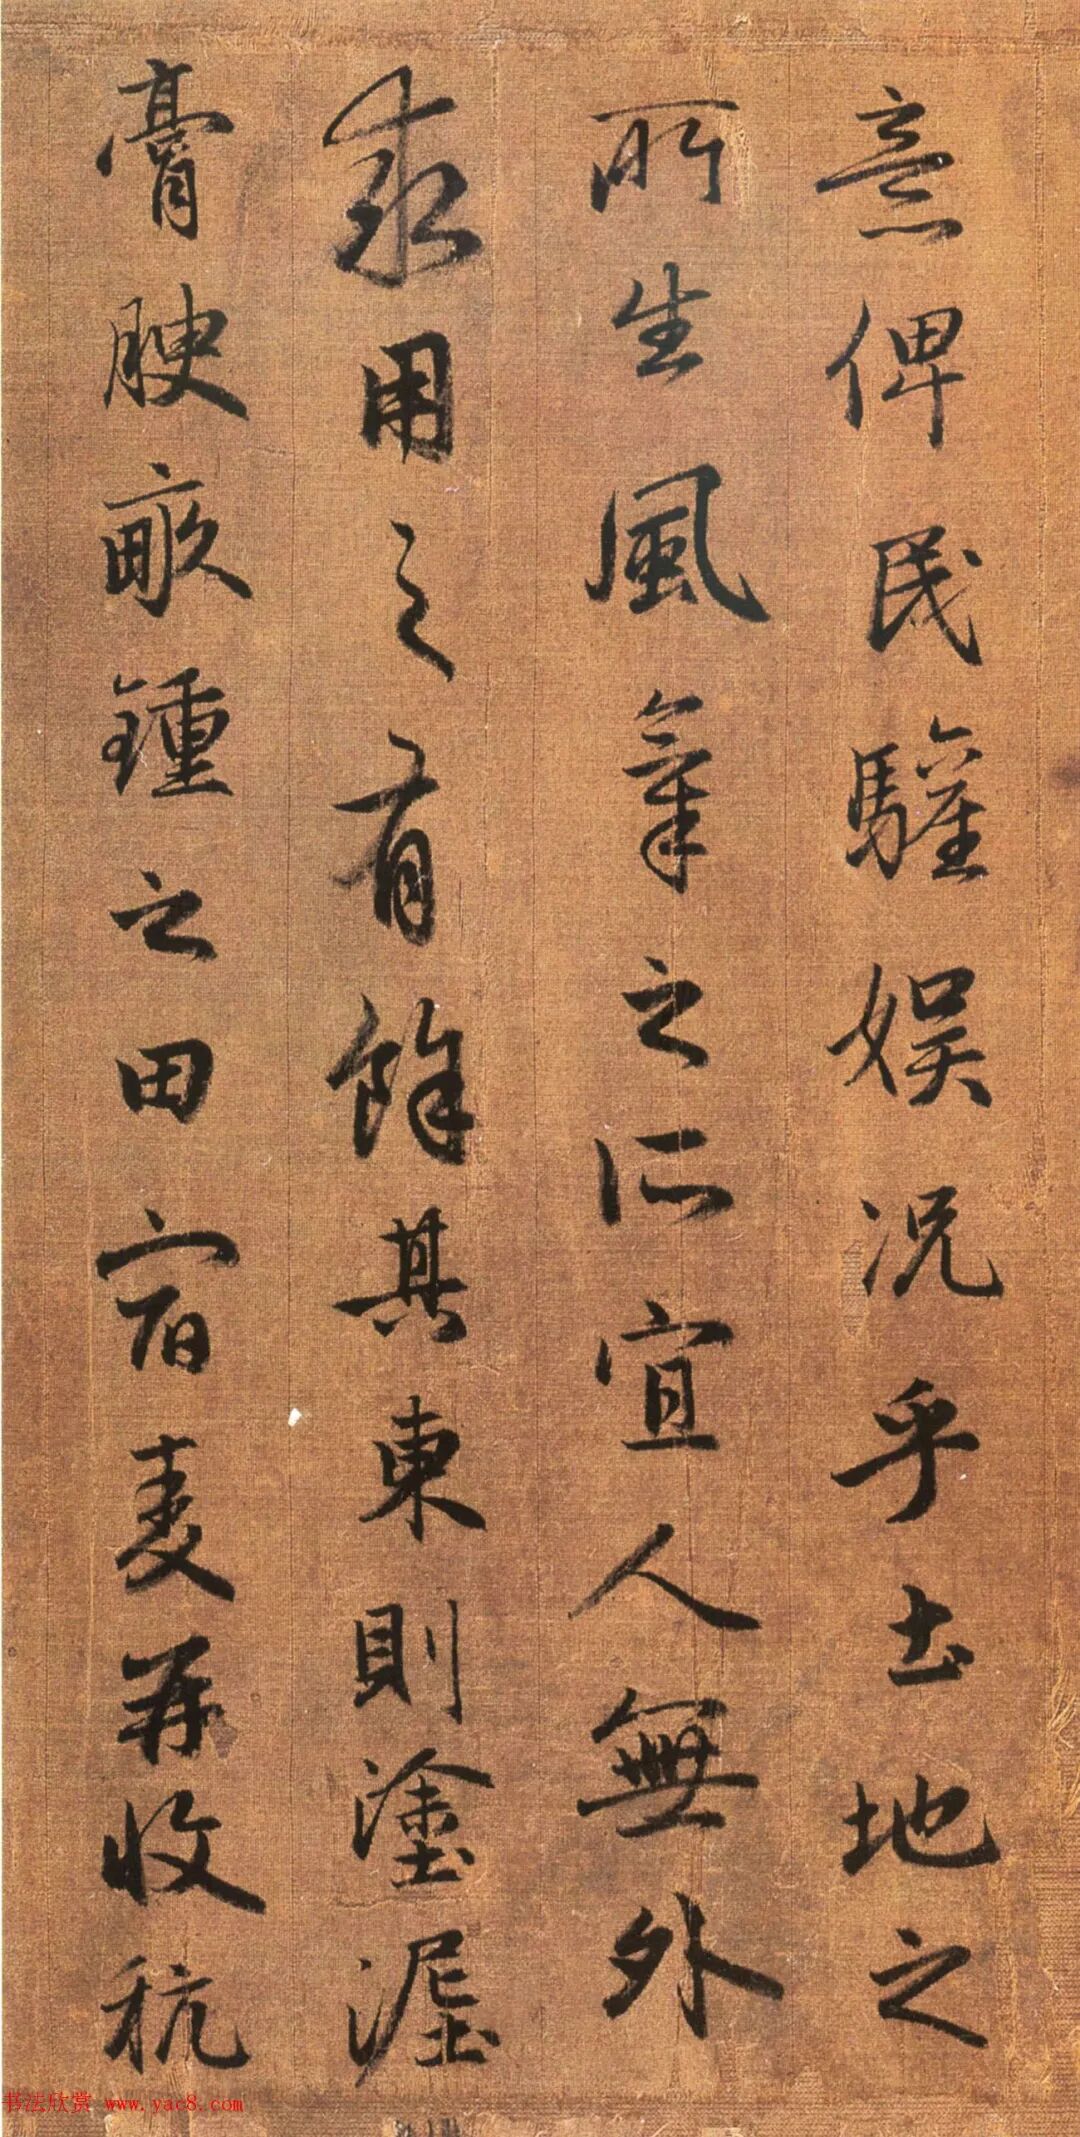 意俾民驩娱况乎土地之
所生風氣之所宜人無外
求用之有餘其東則塗渥
膏腴畝鍾之田宿麦再收秔
书法欣赏 www.yac8.com